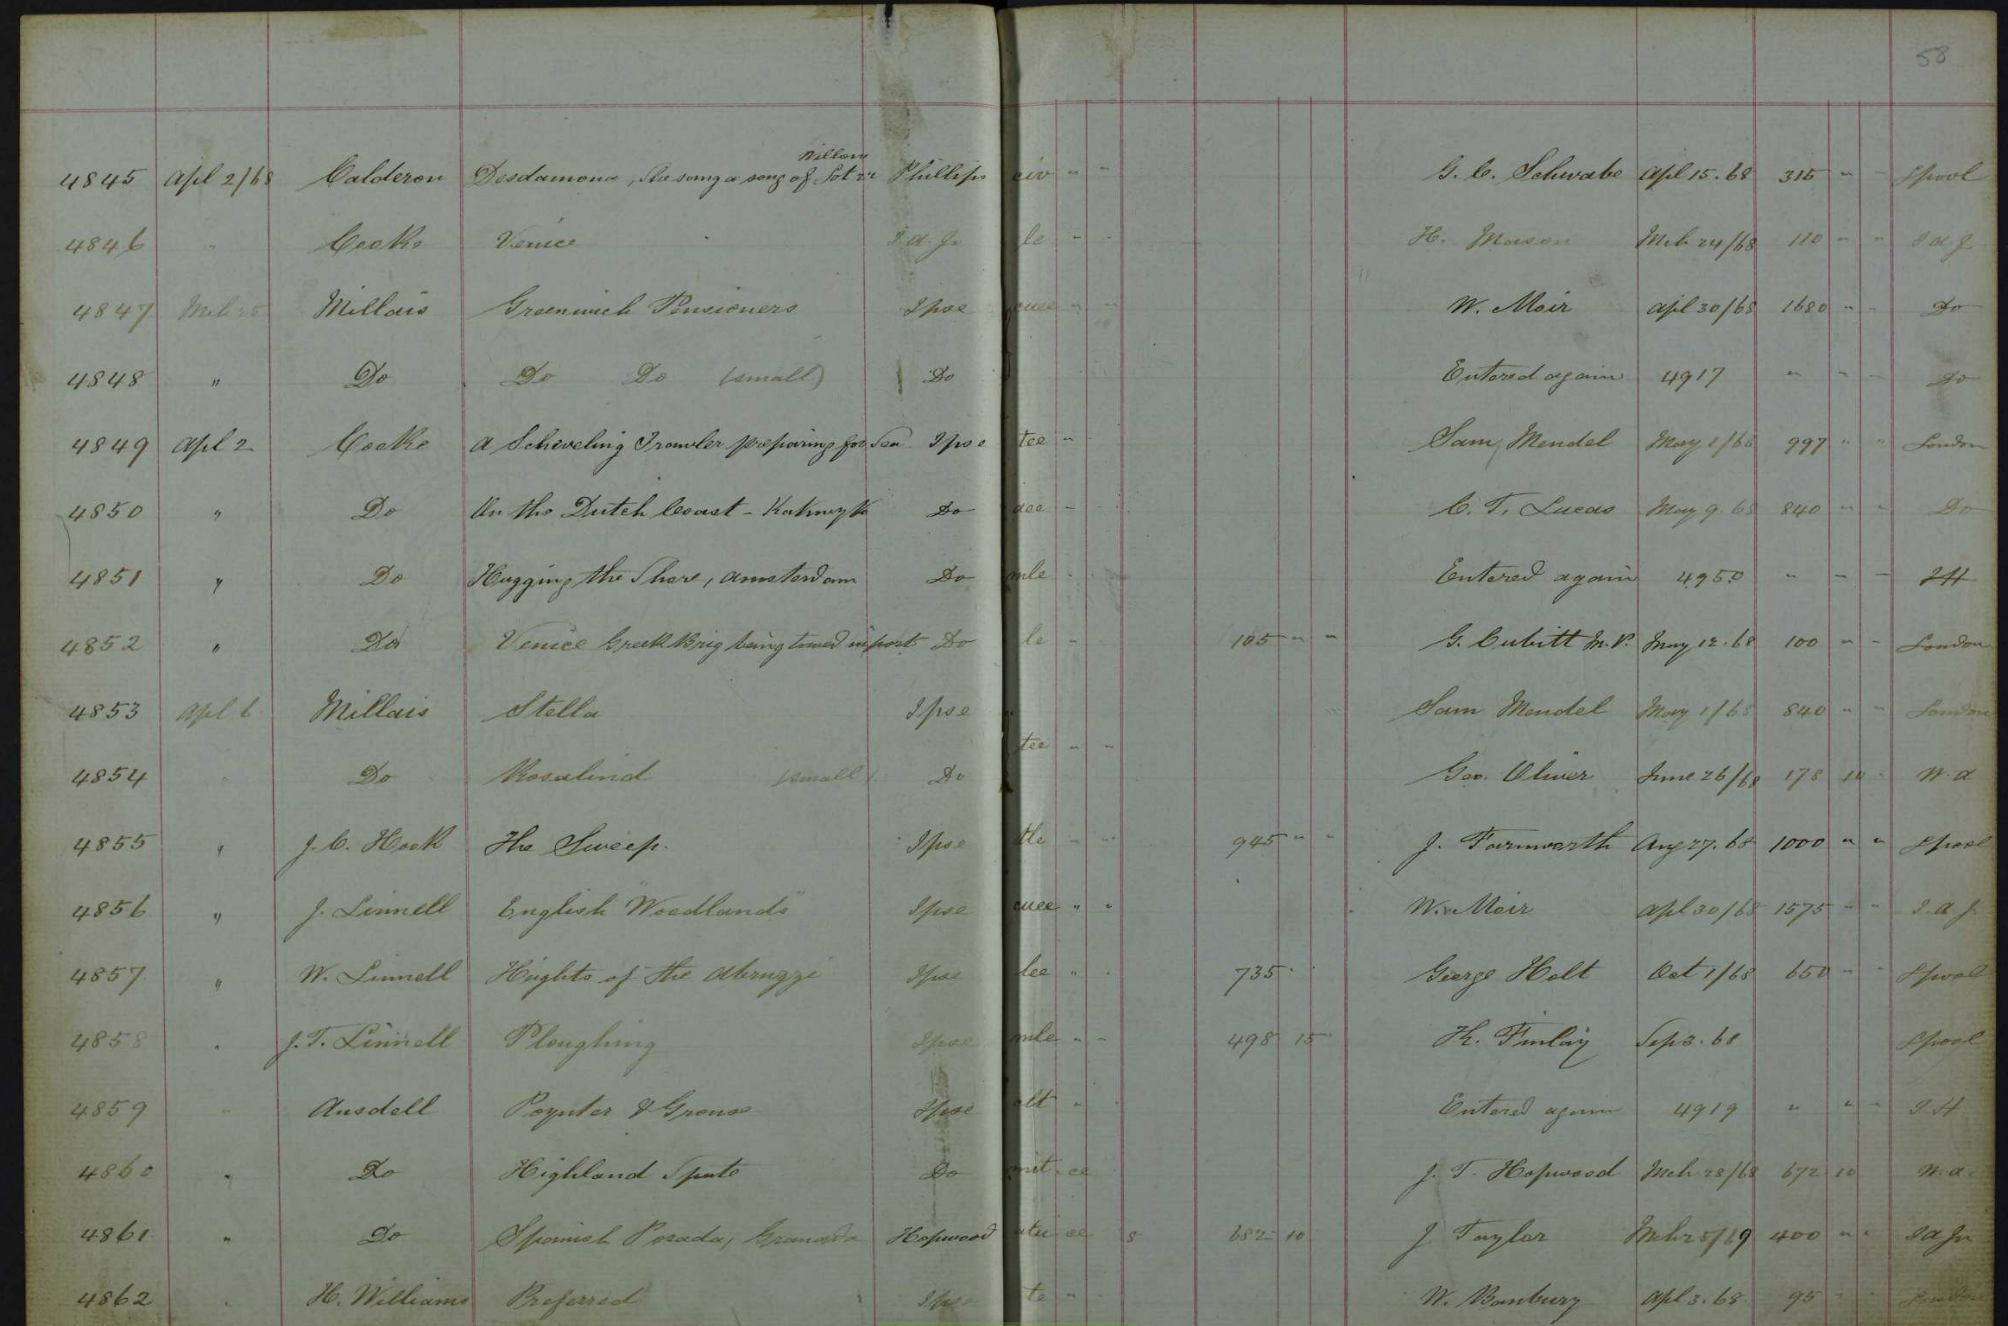 58
Willow
4845 Apl 2/68 Calderon Desdamona, She sang a song of Phillips civ " " G. C. Schwabe Apl 15.68 315 " " Lpool
4846 " Cooke Venice le " " H. Mason Mch 24/68 110 " "
4847 Mch 25 Millais Greenwich Pensioners Ipse cuee " " W. Moir Apl 30/68 1680 " " Do
4848 " Do Do Do (small) Do Entered again 4917 " " " Do
4849 Apl 2 Cooke A Scheveling Trawler preparing for Sea Ipse tee " Sam Mendel May 1/68 997 " " London
4850 " Do On the Dutch Coast - Katwyk Do aee " C. T. Lucas May 9.68 840 " " Do
4851 " Do Hugging the Shore, Amsterdam Do mle " Entered again 4950 " " "
4852 " Do Venice Greek Brig being towed in port Do le " 105 " " G. Cubitt M.P. May 12.68 100 " " London
4853 Apl 6 Millais Stella Ipse Sam Mendel May 1/68 840 " " London
tee " "
4854 " Do Rosalind (small) Do Geo. Oliver June 26/68 178 10 W.A
4855 " J. C. Hook The Sweep. Ipse " " 945 " " J. Farnworth Aug 27.68 1000 " " Lpool
4856 " J. Linnell English "Woodlands" Ipse cuee " " W. Moir Apl 30/68 1575 " "
4857 " W. Linnell Heights of the Abruzzi Ipse lee " " 735 George Holt Oct 1/68 650 " " Lpool
4858 " J. T. Linnell Ploughing Ipse mle " " 498 15 K. Finlay Sep 3.68 Lpool
4859 " Ansdell Poynter & Grouse Ipse olt " Entered again 4919 " " "
4860 " Do Highland Spate Do mit ce J. T. Hopwood Mch 28/68 672 10 W.A.
4861 " Do Spanish Posada, Granada Hopwood ce 8 682 10 J Taylor 400 " "
4862 " H. Williams Preferred Ipse te " W. Banbury Apl 3.68 95